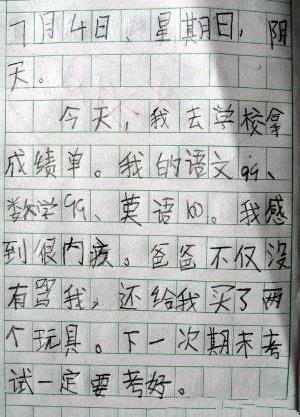 7月4日、星期日，阴
天。
今天，我去学校拿
成绩单。我的语文99、
数学99、英语100。我感
到很内疚。爸爸不仅没
有骂我，还给我买了两
个玩具。下一次期末考
试一定要考好。